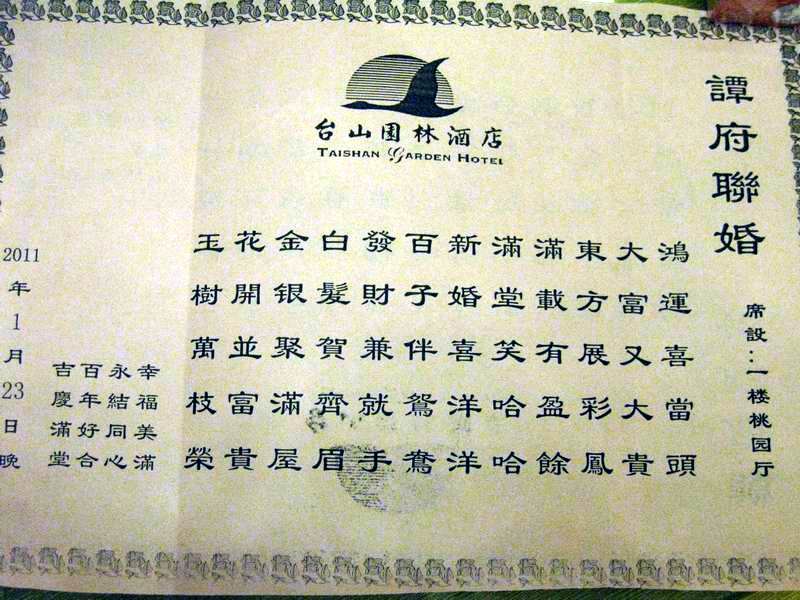 台山園林酒店
TAISHAN GARDEN HOTEL
譚府聯婚
席設：一楼桃园厅
鴻運喜當頭
大富又大貴
東方展彩鳳
滿載有盈餘
滿堂笑哈哈
新婚喜洋洋
百子伴鴛鴦
發財兼就手
白髮賀齊眉
金銀聚滿屋
花開並富貴
玉樹萬枝榮
幸福美滿
永結同心
百年好合
吉慶滿堂
2011年1月23日晚